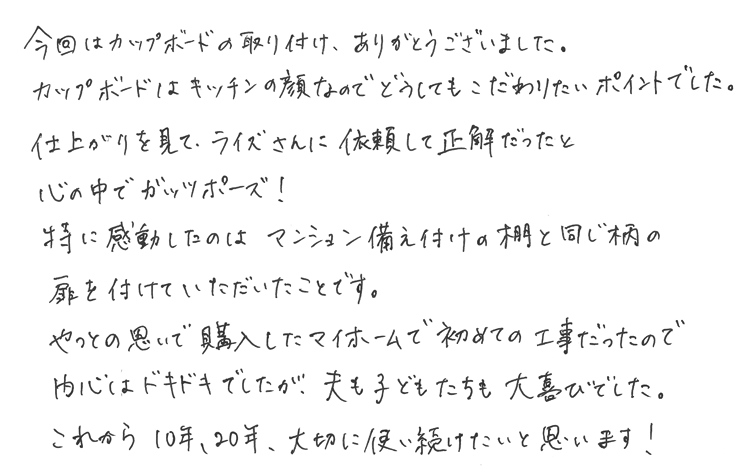 今回はカップボードの取り付け、ありがとうございました。
カップボードはキッチンの顔なのでどうしてもこだわりたいポイントでした。
仕上がりを見て、ライズさんに依頼して正解だったと
心の中でガッツポーズ！
特に感動したのは マンション備え付けの棚と同じ柄の
扉を付けていただいたことです。
やっとの思いで購入したマイホームで初めての工事だったので
内心はドキドキでしたが、夫も子どもたちも大喜びでした。
これから10年、20年、大切に使い続けたいと思います！